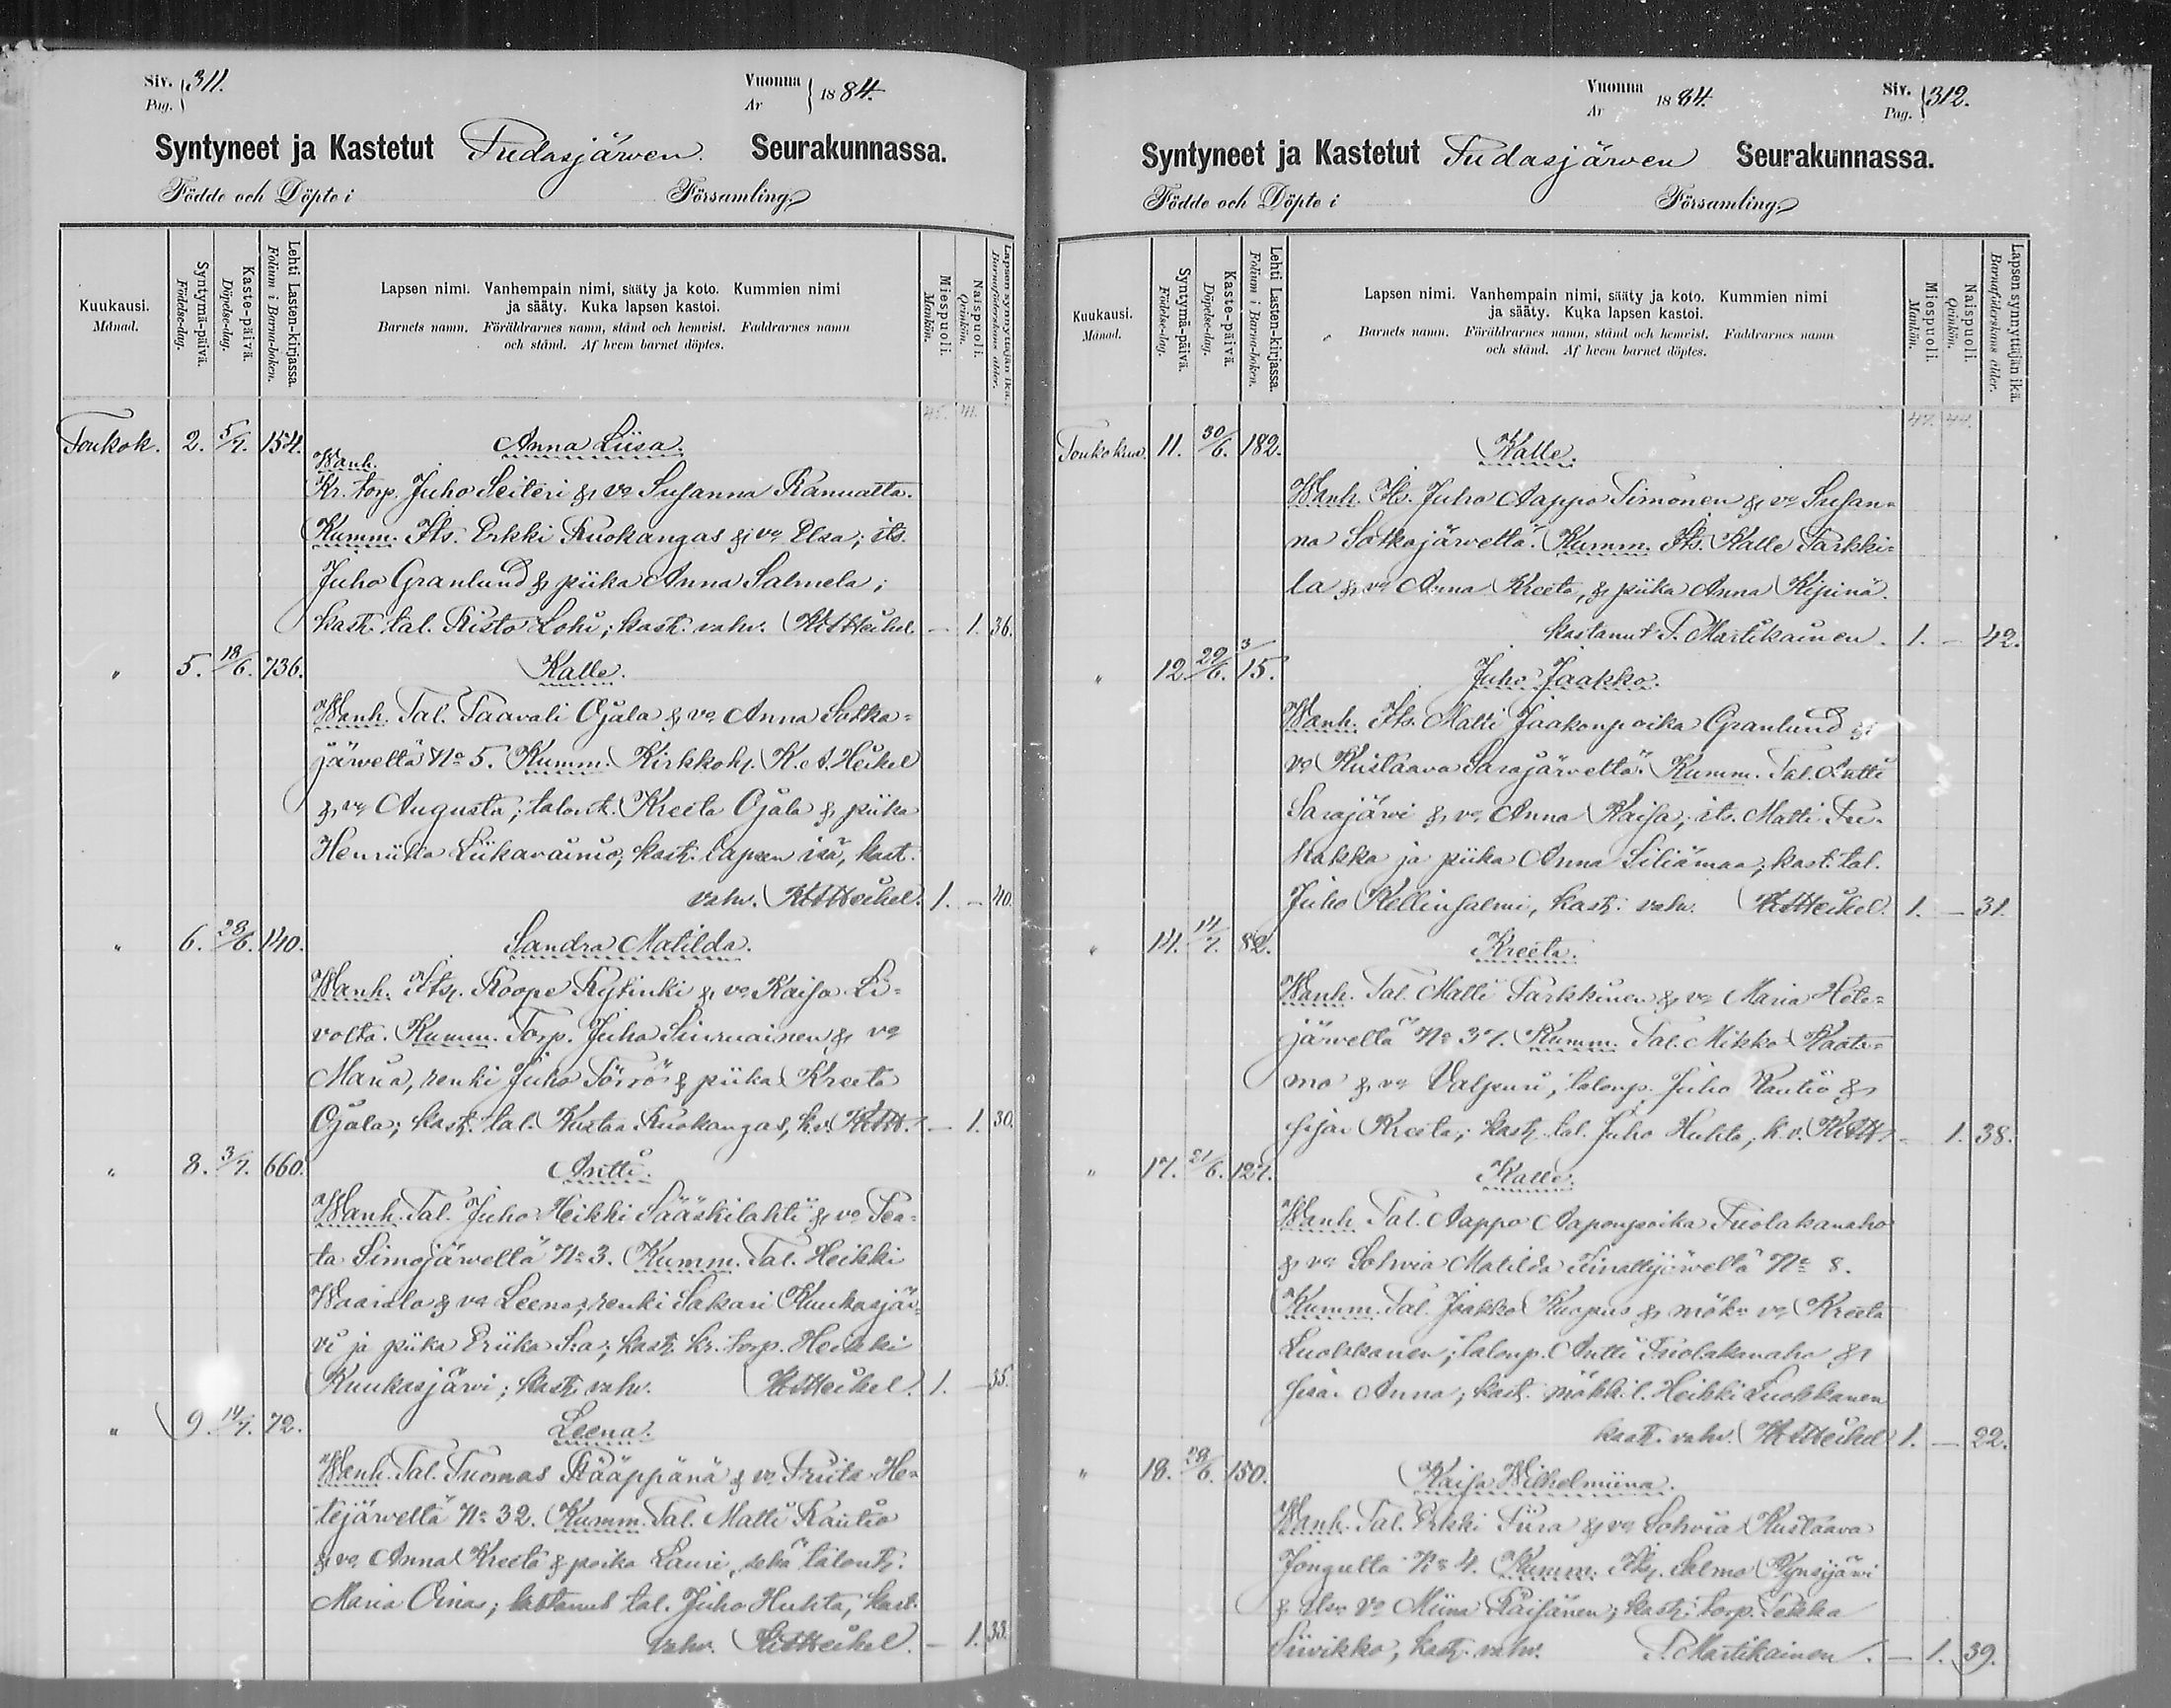 Siv. 311.
Pag.
Vuonna 1884.
År
Syntyneet ja Kastetut Pudasjärwen Seurakunnassa.
Födde och Döpte i Församling
Kuukausi.
Månad.
Syntymä-päivä.
Födelse-dag.
Kaste-päivä.
Döpelse-dag.
Lehti Lasten-kirjassa.
Folium i Barna-boken.
Lapsen nimi. Vanhempain nimi, sääty ja koto. Kummien nimi
ja sääty. Kuka lapsen kastoi.
Barnets namn. Föräldrarnes namn, stånd och hemvist. Faddrarnes namn
och stånd. Af hvem barnet döptes.
Miespuoli.
Mankön.
Naispuoli.
Qvinkön.
Lapsen synnyttäjän ikä.
Barnaföderskans ålder.
45. 41.
Toukok. 2. 5/7. 154. Anna Liisa.
Wanh.
Kr. torp. Juho Seiteri & vo Susanna Ranualta.
Kumm. Its. Erkki Ruokangas & vo Elsa; its.
Juho Granlund & piika Anna Salmela;
kast. tal. Risto Lohi; kast. vahv. KAHeikel — 1. 36.
" 5. 18/6. 736. Kalle.
Wanh. Tal. Paavali Ojala & vo Anna Sotka=
järveltä No 5. Kumm. Kirkkoh. K. A. Heikel
& vo Augusta; talont. Kreeta Ojala & piika
Henriika Liikavainio; kast. lapsen isä, kast.
vahv. KAHeikel. 1. — 40.
" 6. 28/6. 140. Sandra Matilda.
Wanh. Its. Roope Rytinki & vo Kaisa Li=
volta. Kumm. Torp. Juho Siuruainen & vo
Maria, renki Juho Törrö & piika Kreeta
Ojala; kast. tal. Kustaa Ruokangas, k.v. KAH. — 1. 30.
" 8. 3/7. 660. Antti.
Wanh. Tal. Juho Heikki Sääskilahti & vo Pee=
ta Simojärvellä No 3. Kumm. Tal. Heikki
Waarala & vo Leena; renki Sakari Kuukasjär=
vi ja piika Eriika S:a; kast. kr. torp. Heikki
Kuukasjärvi; kast. vahv. KAHeikel. 1. — 35.
" 9. 14/7. 72. Leena.
Wanh. Tal. Tuomas Rääppänä & vo Priita He=
tejärveltä No 32. Kumm. Tal. Matti Rautio
& vo Anna Kreeta & poika Lauri, sekä talont.
Maria Oinas; kastanut tal. Juho Huhta, kast.
vahv. KAHeikel. — 1. 33.
Vuonna 1884.
År
Siv. 312.
Pag.
Syntyneet ja Kastetut Pudasjärwen Seurakunnassa.
Födde och Döpte i Församling
Kuukausi.
Månad.
Syntymä-päivä.
Födelse-dag.
Kaste-päivä.
Döpelse-dag.
Lehti Lasten-kirjassa.
Folium i Barna-boken.
Lapsen nimi. Vanhempain nimi, sääty ja koto. Kummien nimi
ja sääty. Kuka lapsen kastoi.
Barnets namn. Föräldrarnes namn, stånd och hemvist. Faddrarnes namn
och stånd. Af hvem barnet döptes.
Miespuoli.
Mankön.
Naispuoli.
Qvinkön.
Lapsen synnyttäjän ikä.
Barnaföderskans ålder.
47. 44.
Toukokuu. 11. 30/6. 182. Kalle.
Wanh. Its. Juho Aappo Timonen & vo Susan=
na Sotkajärveltä. Kumm. Its. Kalle Parkki=
la & vo Anna Kreeta, & piika Anna Kipinä.
kastanut P. Martikainen. 1. — 42.
" 12. 29/6. 3/15. Juho Jaakko.
Wanh. Its. Matti Jaakonpoika Granlund &
vo Kustaava Sarajärveltä. Kumm. Tal. Antti
Sarajärvi & vo Anna Kaisa; its. Matti Pu=
hakka ja piika Anna Siliämaa; kast. tal.
Juho Kellinsalmi, kast. vahv. KAHeikel. 1. — 31.
" 14. 14/7. 82. Kreeta.
Wanh. Tal. Matti Parkkinen & vo Maria Hete=
järveltä No 37. Kumm. Tal. Mikko Kaata=
mo & vo Valpuri, talonp. Juho Rautio &
sisar Kreeta; kast. tal. Juho Huhta, k.v. KAH. — 1. 38.
" 17. 21/6. 127. Kalle.
Wanh. Tal. Aappo Aaponpoika Puolakanaho
& vo Sohvia Matilda Iinattijärveltä No 8.
Kumm. Tal. Jaakko Kuopus & mök. vo Kreeta
Luokkanen; talonp. Antti Puolakanaho &
sisar Anna; kast. mökkil. Heikki Luokkanen
kast. vahv. KAHeikel 1. — 22.
" 18. 28/6. 150. Kaisa Wilhelmiina.
Wanh. Tal. Erkki Piira & vo Sohvia Kustaava
Jongulta No 4. Kumm. Its. Salmo Kynsijärvi
& vo Miina Räisänen; kast. torp. Pekka
Siivikko, kast. vahv. P. Martikainen. — 1. 39.